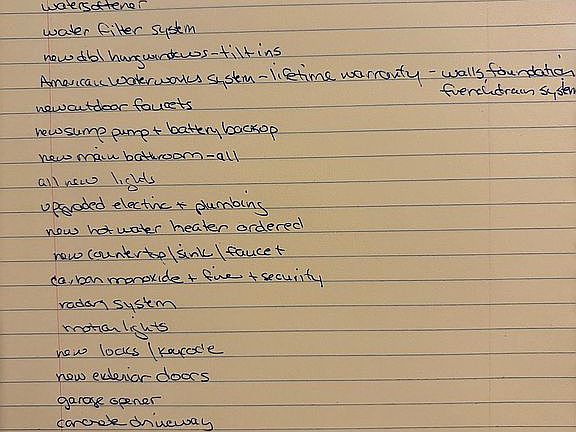 watersoftener
water filter system
new dbl hung windows - tilt ins
American Waterworks system - lifetime warranty - walls foundation
french drain system
new outdoor faucets
new sump pump + battery backup
new main bathroom - all
all new lights
upgraded electric + plumbing
new hot water heater ordered
new countertop / sink / faucet
carbon monoxide + fire + security
radon system
motion lights
new locks / keycode
new exterior doors
garage opener
concrete driveway